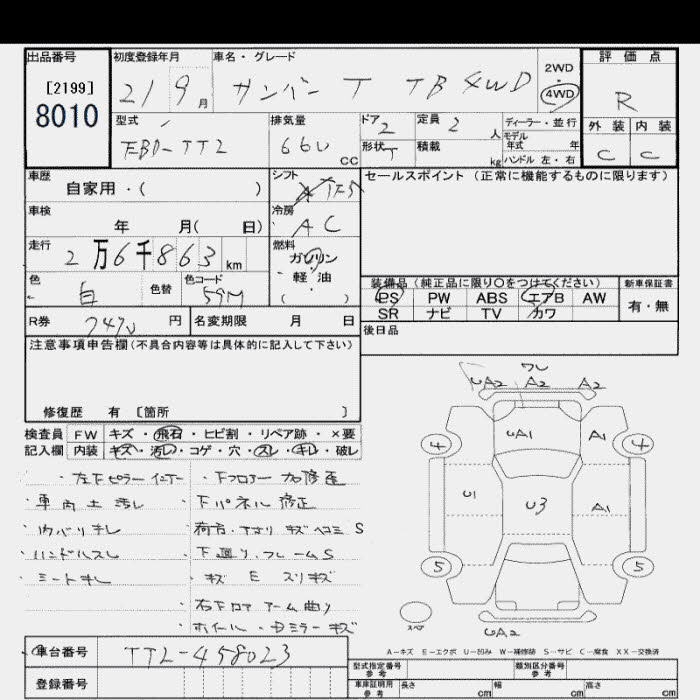 出品番号 初度登録年月 車名・グレード 評価点
[2199]
8010
21 9月 サンバー T TB 4WD
2WD
・
4WD
R
型式 排気量 ドア 定員 ディーラー・並行 外装 内装
EBD-TT2 660 cc 2 2 人 モデル年式 年
形状 T 積載 kg ハンドル 左・右 C C
車歴 自家用・( ) シフト セールスポイント(正常に機能するものに限ります)
車検 年 月( 日) 冷房 AC
走行 2万6千863 km 燃料 ガソリン
軽・油
( )
色 白 色替 色コード 59M
装備品(純正品に限り○をつけてください) 新車保証書
PS PW ABS エアB AW 有・無
SR ナビ TV カワ
R券 7470 円 名変期限 月 日
後日品
注意事項申告欄(不具合内容等は具体的に記入して下さい)
修復歴 有 [箇所 ]
検査員 FW キズ・飛石・ヒビ割・リペア跡・×要
記入欄 内装 キズ・汚レ・コゲ・穴・スレ・キレ・破レ
・左下ピラーインナー
・車内 土 汚レ
・内バリキレ
・ハンドルスレ
・シートキレ
・下フロアー 加修歪
・下パネル 修正
荷台・アオリ キズ ヘコミ S
・下廻り、フレーム S
・キズ E スリキズ
・右下ロアアーム曲り
・ホイール・ミラーキズ
UA2 A2 A2
4 UA1 A1 4
U1 U3 A1
5 5
スペア
UA2
A-キズ E-エクボ U-凹み W-補修跡 S-サビ C-腐食 XX-交換済
車台番号 TT2-458023
登録番号
型式指定番号 参考 類別区分番号 参考
車庫証明用 参考 長さ cm 幅 cm 高さ cm